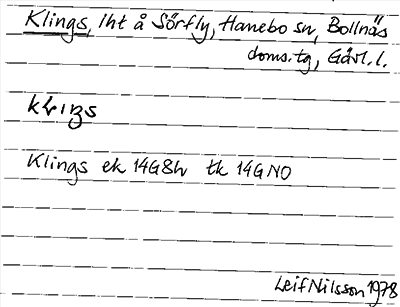 Klings, lht å Sörfly, Hanebo sn, Bollnäs
doms.tg, Gävl. l.
Klings ek 14G8h tk 14GNO
Leif Nilsson 1978